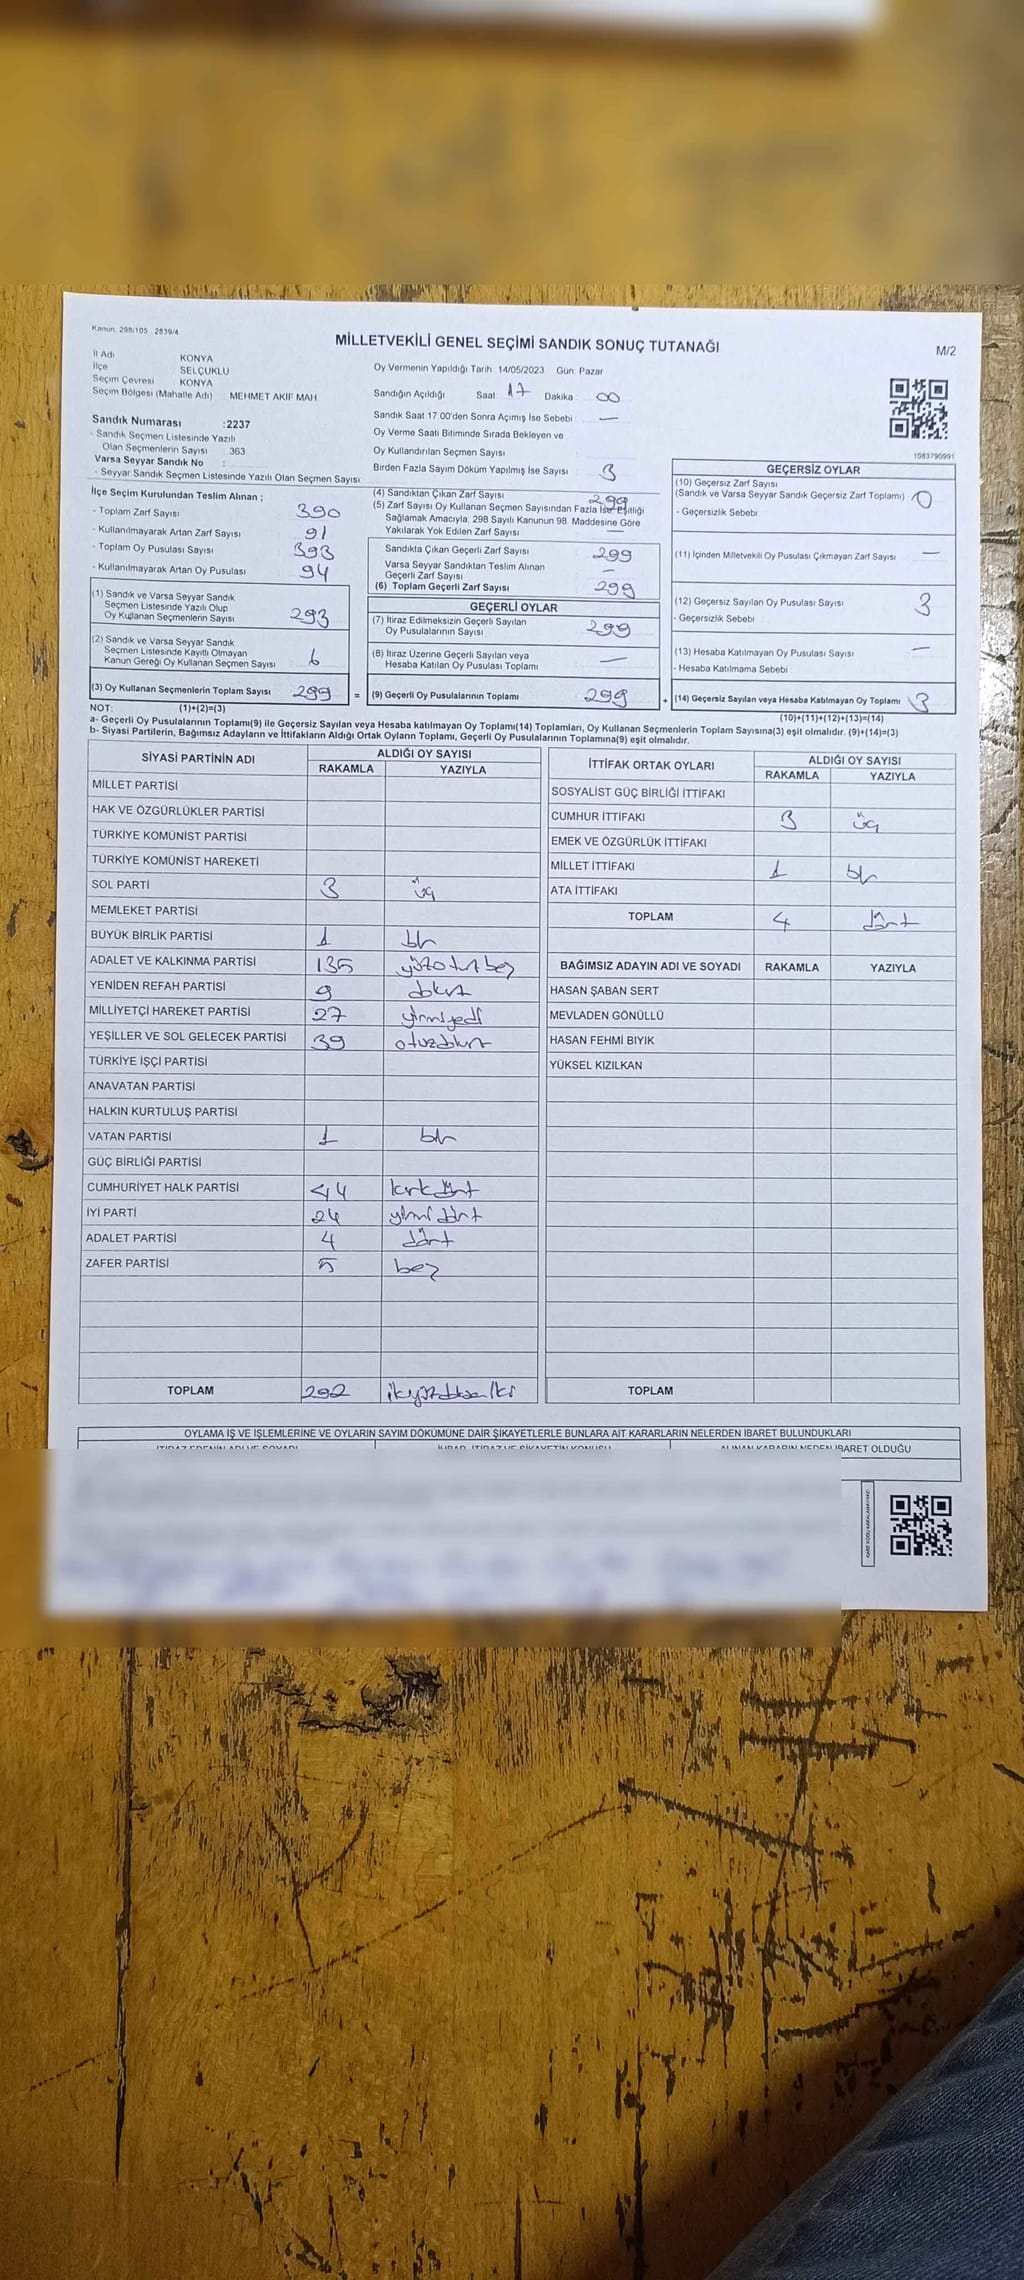 Kanun: 298/105 , 2839/4
MİLLETVEKİLİ GENEL SEÇİMİ SANDIK SONUÇ TUTANAĞI
M/2
İl Adı KONYA
İlçe SELÇUKLU
Seçim Çevresi KONYA
Seçim Bölgesi (Mahalle Adı) : MEHMET AKİF MAH.
Oy Vermenin Yapıldığı Tarih 14/05/2023 Gün Pazar
Sandığın Açıldığı Saat 17 Dakika 00
Sandık Saat 17 00'den Sonra Açımış İse Sebebi : —
Oy Verme Saati Bitiminde Sırada Bekleyen ve
Oy Kullandırılan Seçmen Sayısı
Birden Fazla Sayım Döküm Yapılmış İse Sayısı 3
Sandık Numarası :2237
- Sandık Seçmen Listesinde Yazılı
Olan Seçmenlerin Sayısı : 363
Varsa Seyyar Sandık No :
- Seyyar Sandık Seçmen Listesinde Yazılı Olan Seçmen Sayısı
1083790991
İlçe Seçim Kurulundan Teslim Alınan ;
- Toplam Zarf Sayısı 390
- Kullanılmayarak Artan Zarf Sayısı 91
- Toplam Oy Pusulası Sayısı 393
- Kullanılmayarak Artan Oy Pusulası 94
(1) Sandık ve Varsa Seyyar Sandık
Seçmen Listesinde Yazılı Olup
Oy Kullanan Seçmenlerin Sayısı 293
(2) Sandık ve Varsa Seyyar Sandık
Seçmen Listesinde Kayıtlı Olmayan
Kanun Gereği Oy Kullanan Seçmen Sayısı 6
(3) Oy Kullanan Seçmenlerin Toplam Sayısı 299 =
(4) Sandıktan Çıkan Zarf Sayısı 299
(5) Zarf Sayısı Oy Kullanan Seçmen Sayısından Fazla İse, Eşitliği
Sağlamak Amacıyla, 298 Sayılı Kanunun 98. Maddesine Göre
Yakılarak Yok Edilen Zarf Sayısı —
Sandıkta Çıkan Geçerli Zarf Sayısı 299
Varsa Seyyar Sandıktan Teslim Alınan
Geçerli Zarf Sayısı —
(6) Toplam Geçerli Zarf Sayısı 299
GEÇERLİ OYLAR
(7) İtiraz Edilmeksizin Geçerli Sayılan
Oy Pusulalarının Sayısı 299
(8) İtiraz Üzerine Geçerli Sayılan veya
Hesaba Katılan Oy Pusulası Toplamı —
(9) Geçerli Oy Pusulalarının Toplamı 299 +
GEÇERSİZ OYLAR
(10) Geçersiz Zarf Sayısı
(Sandık ve Varsa Seyyar Sandık Geçersiz Zarf Toplamı) 0
- Geçersizlik Sebebi
(11) İçinden Milletvekili Oy Pusulası Çıkmayan Zarf Sayısı —
(12) Geçersiz Sayılan Oy Pusulası Sayısı 3
- Geçersizlik Sebebi
(13) Hesaba Katılmayan Oy Pusulası Sayısı —
- Hesaba Katılmama Sebebi
(14) Geçersiz Sayılan veya Hesaba Katılmayan Oy Toplamı 3
NOT: (1)+(2)=(3)
(10)+(11)+(12)+(13)=(14)
a- Geçerli Oy Pusulalarının Toplamı(9) ile Geçersiz Sayılan veya Hesaba katılmayan Oy Toplamı(14) Toplamları, Oy Kullanan Seçmenlerin Toplam Sayısına(3) eşit olmalıdır. (9)+(14)=(3)
b- Siyasi Partilerin, Bağımsız Adayların ve İttifakların Aldığı Ortak Oyların Toplamı, Geçerli Oy Pusulalarının Toplamına(9) eşit olmalıdır.
SİYASİ PARTİNİN ADI ALDIĞI OY SAYISI
RAKAMLA YAZIYLA
MİLLET PARTİSİ
HAK VE ÖZGÜRLÜKLER PARTİSİ
TÜRKİYE KOMÜNİST PARTİSİ
TÜRKİYE KOMÜNİST HAREKETİ
SOL PARTİ 3 üç
MEMLEKET PARTİSİ
BÜYÜK BİRLİK PARTİSİ 1 bir
ADALET VE KALKINMA PARTİSİ 135 yüzotuzbeş
YENİDEN REFAH PARTİSİ 9 dokuz
MİLLİYETÇİ HAREKET PARTİSİ 27 yirmiyedi
YEŞİLLER VE SOL GELECEK PARTİSİ 39 otuzdokuz
TÜRKİYE İŞÇİ PARTİSİ
ANAVATAN PARTİSİ
HALKIN KURTULUŞ PARTİSİ
VATAN PARTİSİ 1 bir
GÜÇ BİRLİĞİ PARTİSİ
CUMHURİYET HALK PARTİSİ 44 kırkdört
İYİ PARTİ 24 yirmi dört
ADALET PARTİSİ 4 dört
ZAFER PARTİSİ 5 beş
TOPLAM 292 ikiyüzdoksaniki
İTTİFAK ORTAK OYLARI ALDIĞI OY SAYISI
RAKAMLA YAZIYLA
SOSYALİST GÜÇ BİRLİĞİ İTTİFAKI
CUMHUR İTTİFAKI 3 üç
EMEK VE ÖZGÜRLÜK İTTİFAKI
MİLLET İTTİFAKI 1 bir
ATA İTTİFAKI
TOPLAM 4 dört
BAĞIMSIZ ADAYIN ADI VE SOYADI RAKAMLA YAZIYLA
HASAN ŞABAN SERT
MEVLADEN GÖNÜLLÜ
HASAN FEHMİ BIYIK
YÜKSEL KIZILKAN
TOPLAM
OYLAMA İŞ VE İŞLEMLERİNE VE OYLARIN SAYIM DÖKÜMÜNE DAİR ŞİKAYETLERLE BUNLARA AİT KARARLARIN NELERDEN İBARET BULUNDUKLARI
İTİRAZ EDENİN ADI VE SOYADI İHBAR, İTİRAZ VE ŞİKAYETİN KONUSU ALINAN KARARIN NEDEN İBARET OLDUĞU